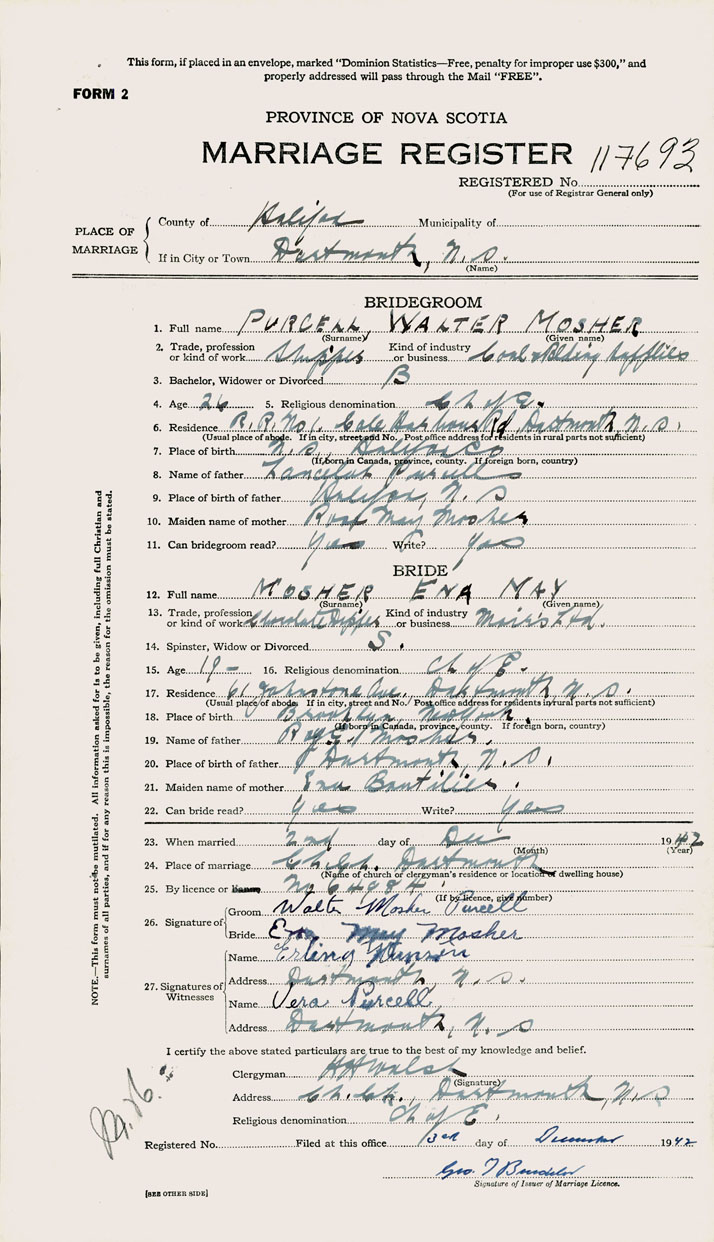 This form, if placed in an envelope, marked "Dominion Statistics—Free, penalty for improper use $300," and
properly addressed will pass through the Mail "FREE".
FORM 2
PROVINCE OF NOVA SCOTIA
MARRIAGE REGISTER 117693
REGISTERED No.
(For use of Registrar General only)
PLACE OF MARRIAGE
County of Halifax Municipality of
If in City or Town Dartmouth, N.S.
(Name)
BRIDEGROOM
1. Full name PURCELL, WALTER MOSHER
(Surname) (Given name)
2. Trade, profession or kind of work Shipper Kind of industry or business Coal & Bldng Supplies
3. Bachelor, Widower or Divorced B
4. Age 26 5. Religious denomination Ch of E.
6. Residence R.R. No 1. Cole Harbour Rd, Dartmouth, N.S.
(Usual place of abode. If in city, street and No. Post office address for residents in rural parts not sufficient)
7. Place of birth N.S. Halifax Co
(If born in Canada, province, county. If foreign born, country)
8. Name of father Lancelot Purcell
9. Place of birth of father Halifax, N.S
10. Maiden name of mother Rose May Mosher
11. Can bridegroom read? Yes Write? Yes
BRIDE
12. Full name MOSHER ENA MAY
(Surname) (Given name)
13. Trade, profession or kind of work Chocolate Dipper Kind of industry or business Moirs Ltd.
14. Spinster, Widow or Divorced S.
15. Age 19 – 16. Religious denomination Ch of E.
17. Residence 61 Johnstone Ave. Dartmouth, N.S.
(Usual place of abode. If in city, street and No. Post office address for residents in rural parts not sufficient)
18. Place of birth Brooklyn,
(If born in Canada, province, county. If foreign born, country)
19. Name of father Mosher.
20. Place of birth of father Dartmouth, N.S.
21. Maiden name of mother Ena
22. Can bride read? Yes Write? Yes
23. When married 2nd day of Dec 1942
(Month) (Year)
24. Place of marriage Ch. Ch. Dartmouth
(Name of church or clergyman's residence or location of dwelling house)
25. By licence or banns No 64984.
(If by licence, give number)
26. Signature of
Groom Walter Mosher Purcell
Bride Ena May Mosher
27. Signatures of Witnesses
Name Erling
Address Dartmouth N.S.
Name Vera Purcell
Address Dartmouth, N.S
I certify the above stated particulars are true to the best of my knowledge and belief.
Clergyman HH Walsh
(Signature)
Address Ch. Ch., Dartmouth, N.S
Religious denomination Ch of E.
Registered No. Filed at this office 3rd day of December 1942
Geo.
Signature of Issuer of Marriage Licence.
[SEE OTHER SIDE]
NOTE.—This form must not be mutilated. All information asked for is to be given, including full Christian and
surnames of all parties, and if for any reason this is impossible, the reason for the omission must be stated.